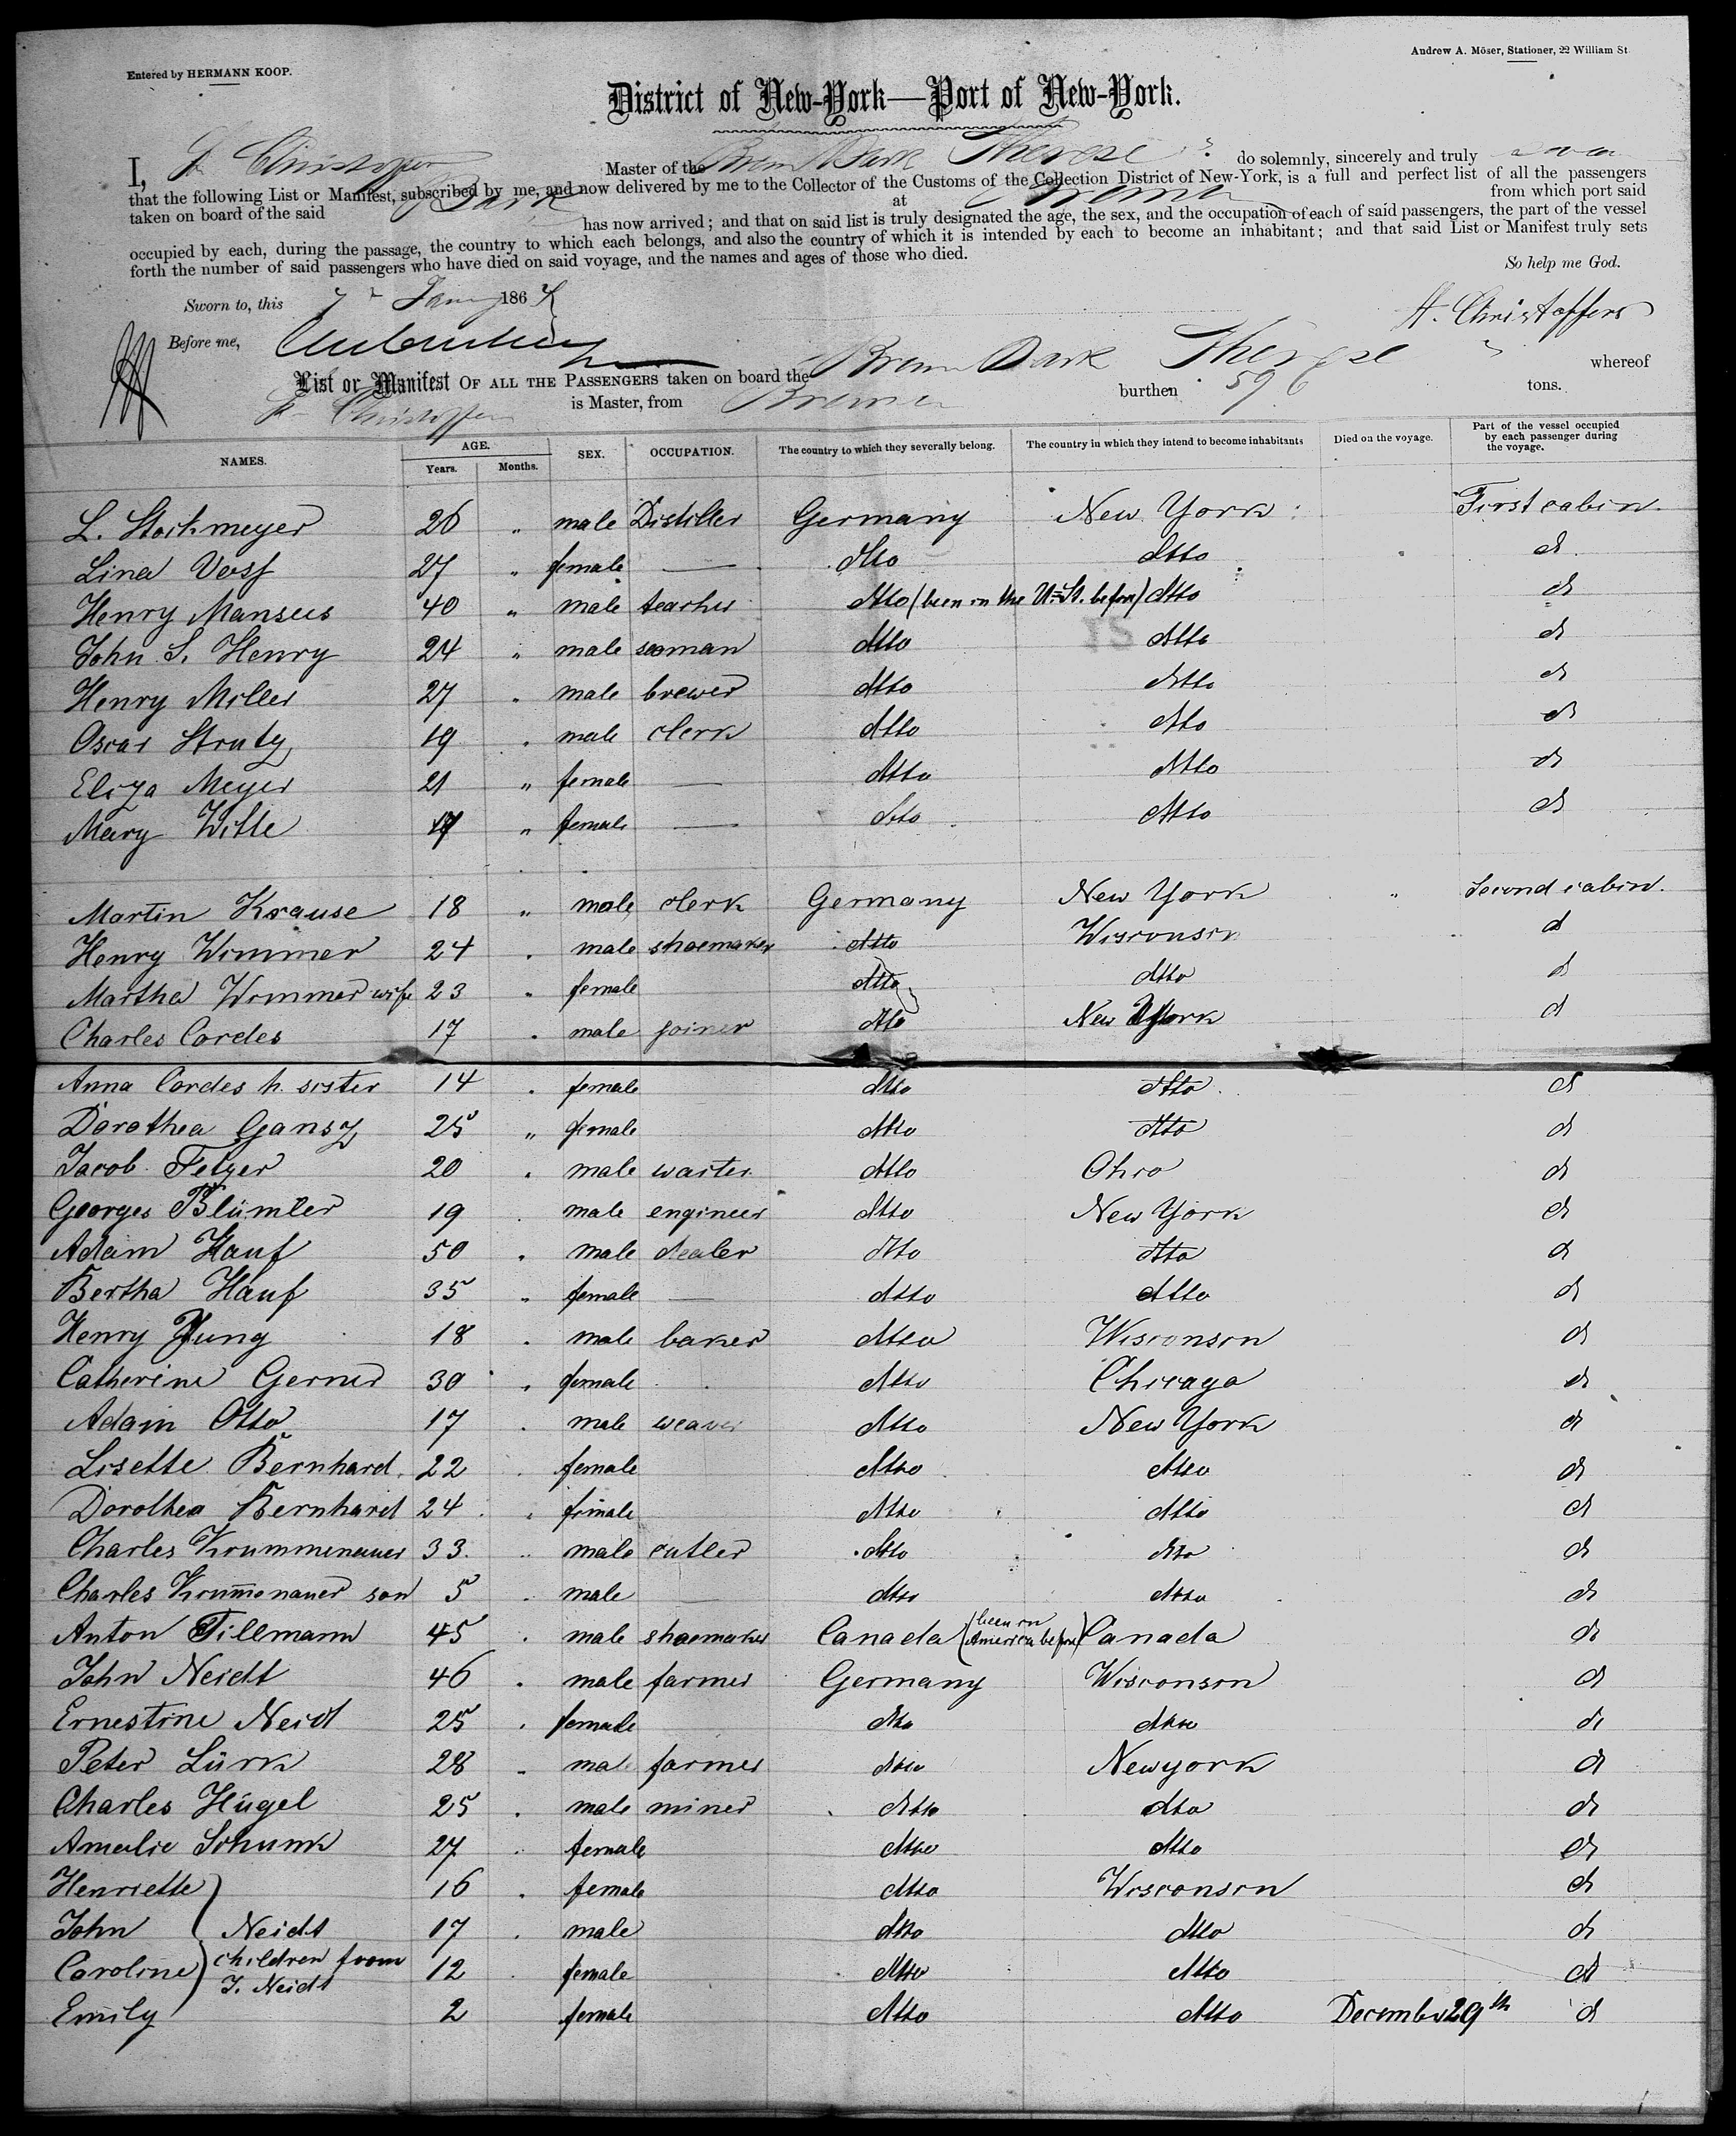 Entered by HERMANN KOOP.
Andrew A. Möser, Stationer, 22 William St
District of New-York—Port of New-York.
I, Christoffers Master of the Brem Bark Therese do solemnly, sincerely and truly
that the following List or Manifest, subscribed by me, and now delivered by me to the Collector of the Customs of the Collection District of New-York, is a full and perfect list of all the passengers
taken on board of the said Bark at Bremen from which port said
has now arrived; and that on said list is truly designated the age, the sex, and the occupation of each of said passengers, the part of the vessel
occupied by each, during the passage, the country to which each belongs, and also the country of which it is intended by each to become an inhabitant; and that said List or Manifest truly sets
forth the number of said passengers who have died on said voyage, and the names and ages of those who died.
So help me God.
Sworn to, this 7 Jany 1864
H. Christoffers
Before me,
List or Manifest OF ALL THE PASSENGERS taken on board the Brem Bark Therese whereof
Christoffers is Master, from Bremen burthen 596 tons.
NAMES. AGE. Years. Months. SEX. OCCUPATION. The country to which they severally belong. The country in which they intend to become inhabitants Died on the voyage. Part of the vessel occupied by each passenger during the voyage.
L. Stockmeyer 26 " male Distiller Germany New York First cabin.
Lina Voss 27 " female — ditto ditto do
Henry Manseus 40 " male teacher ditto (been in the U. St. before) ditto do
John S. Henry 24 " male seaman ditto ditto do
Henry Miller 27 " male brewer ditto ditto do
Oscar Strutz 19 " male clerk ditto ditto do
Eliza Meyer 21 " female — ditto ditto do
Mary Witte " female — ditto ditto do
Martin Krause 18 " male clerk Germany New York " Second cabin.
Henry Wimmer 24 " male shoemaker ditto Wisconsin do
Martha Wimmer wife 23 " female ditto ditto do
Charles Cordes 17 " male joiner ditto New York do
Anna Cordes h. sister 14 " female ditto ditto do
Dorothea Gansz 25 " female ditto ditto do
Jacob Fetzer 20 " male waiter ditto Ohio do
Georges Blümler 19 " male engineer ditto New York do
Adam Hauf 50 " male dealer ditto ditto do
Bertha Hauf 35 " female — ditto ditto do
Henry Jung 18 " male baker ditto Wisconsin do
Catherine Gerner 30 " female ditto Chicago do
Adam Otto 17 " male weaver ditto New York do
Lisette Bernhard 22 " female ditto ditto do
Dorothea Bernhard 24 " female ditto ditto do
Charles Krummenauer 33 " male cutler ditto ditto do
Charles Krummenauer son 5 " male — ditto ditto do
Anton Tillmann 45 " male shoemaker Canada (been in America before) Canada do
John Neidt 46 " male farmer Germany Wisconsin do
Ernestine Neidt 25 " female ditto ditto do
Peter Lürk 28 " male farmer ditto Newyork do
Charles Hügel 25 " male miner ditto ditto do
Amalie Schunk 27 " female ditto ditto do
Henriette 16 " female ditto Wisconsin do
John Neidt 17 " male ditto ditto do
Caroline children from J. Neidt 12 " female ditto ditto do
Emily 2 female ditto ditto December 29th do